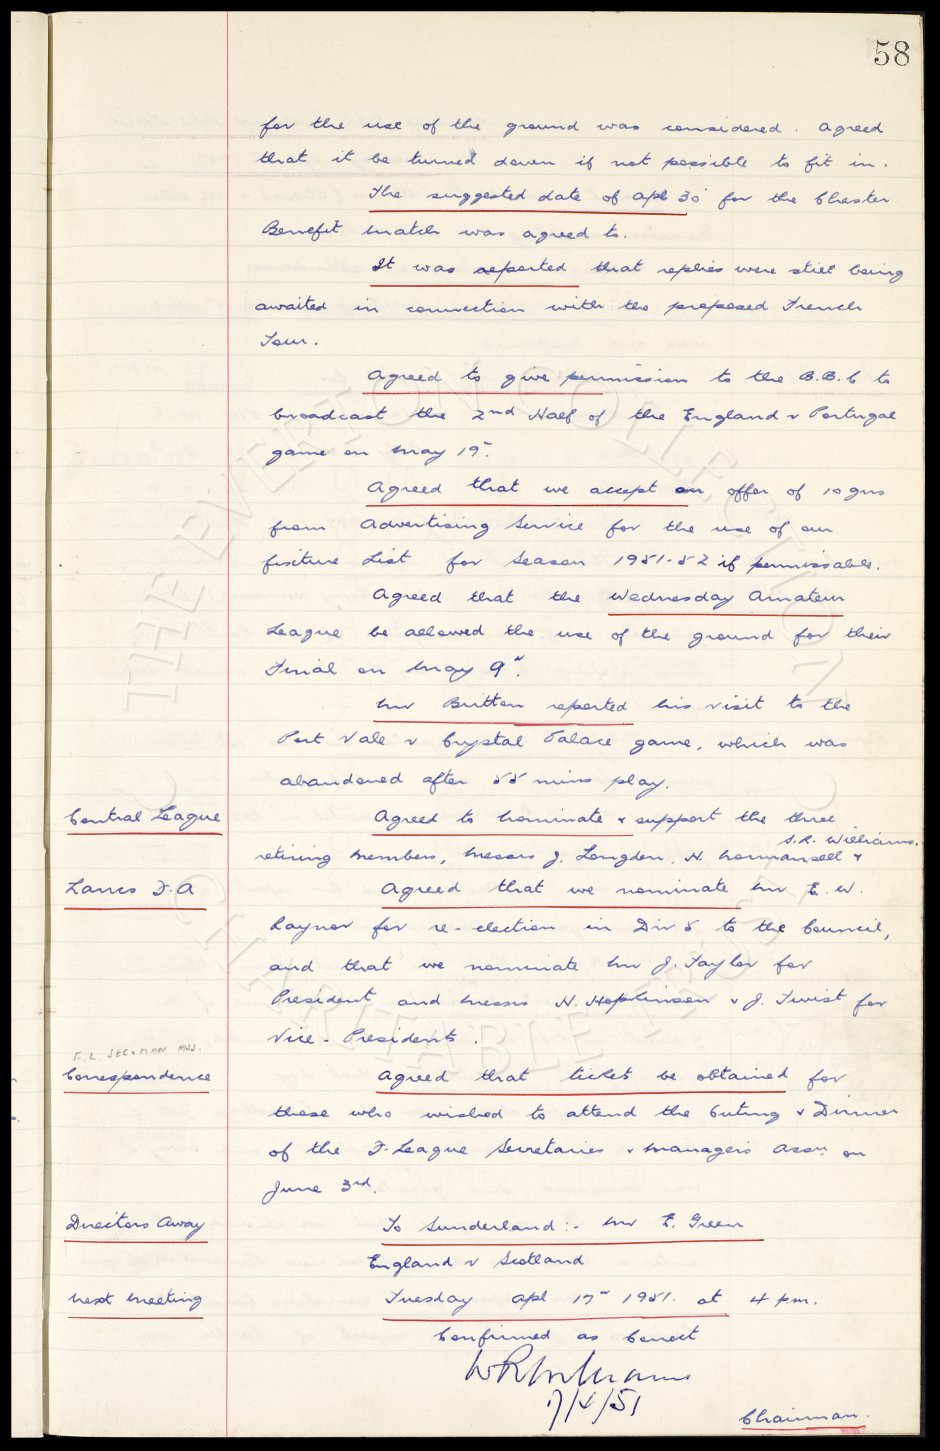 58
for the use of the ground was considered. Agreed
that it be turned down if not possible to fit in.
The suggested date of Apl 30 for the Chester
Benefit Match was agreed to.
It was reported that replies were still being
awaited in connection with the proposed French
Tour.
Agreed to give permission to the B.B.C to
broadcast the 2nd Half of the England v Portugal
game on May 19th.
Agreed that we accept an offer of 10 gns
from Advertising Service for the use of our
fixture List for Season 1951-52 if permissable.
Agreed that the Wednesday Amateur
League be allowed the use of the ground for their
Final on May 9th.
Mr Britton reported his visit to the
Port Vale v Crystal Palace game, which was
abandoned after 55 mins play.
Central League Agreed to nominate & support the three
S.R. Williams.
retiring members, Messrs J. Longden, H. Normansell &
Lancs F.A Agreed that we nominate Mr E.W.
Raynor for re-election in Div 5 to the Council,
and that we nominate Mr J. Taylor for
President and Messrs H. Hopkinson & J. Twist for
Vice-Presidents.
F.L. SEC & MAN ASS.
Correspondence Agreed that tickets be obtained for
those who wished to attend the Outing & Dinner
of the F. League Secretaries & Managers Assn. on
June 3rd.
Directors Away To Sunderland:- Mr E. Green
England v Scotland
Next Meeting Tuesday Apl 17th 1951. at 4 p.m.
Confirmed as Correct
17/4/51
Chairman.
THE EVERTON COLLECTION CHARITABLE TRUST